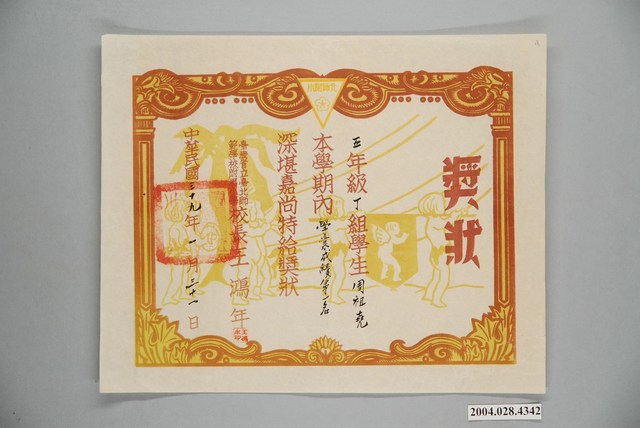 獎狀
五年級丁組學生周祖堯
本學期內學業成績第一名
深堪嘉尚特給獎狀
校長王鴻年
中華民國三十九年一月三十一日
2004.028.4342